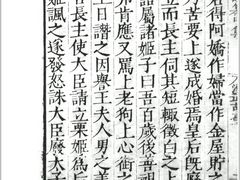 得阿嬌作婦當作金屋貯之
苦要上遂成婚焉皇后旣廢
立而長主伺其短輒微白之上
語屬諸姬子曰吾百歲後善視
弗肯應又罵上老狗上心銜之
王日譖之因譽王夫人男之美
長主使大臣請立栗姬爲
姬諷之遂發怒誅大臣廢太子